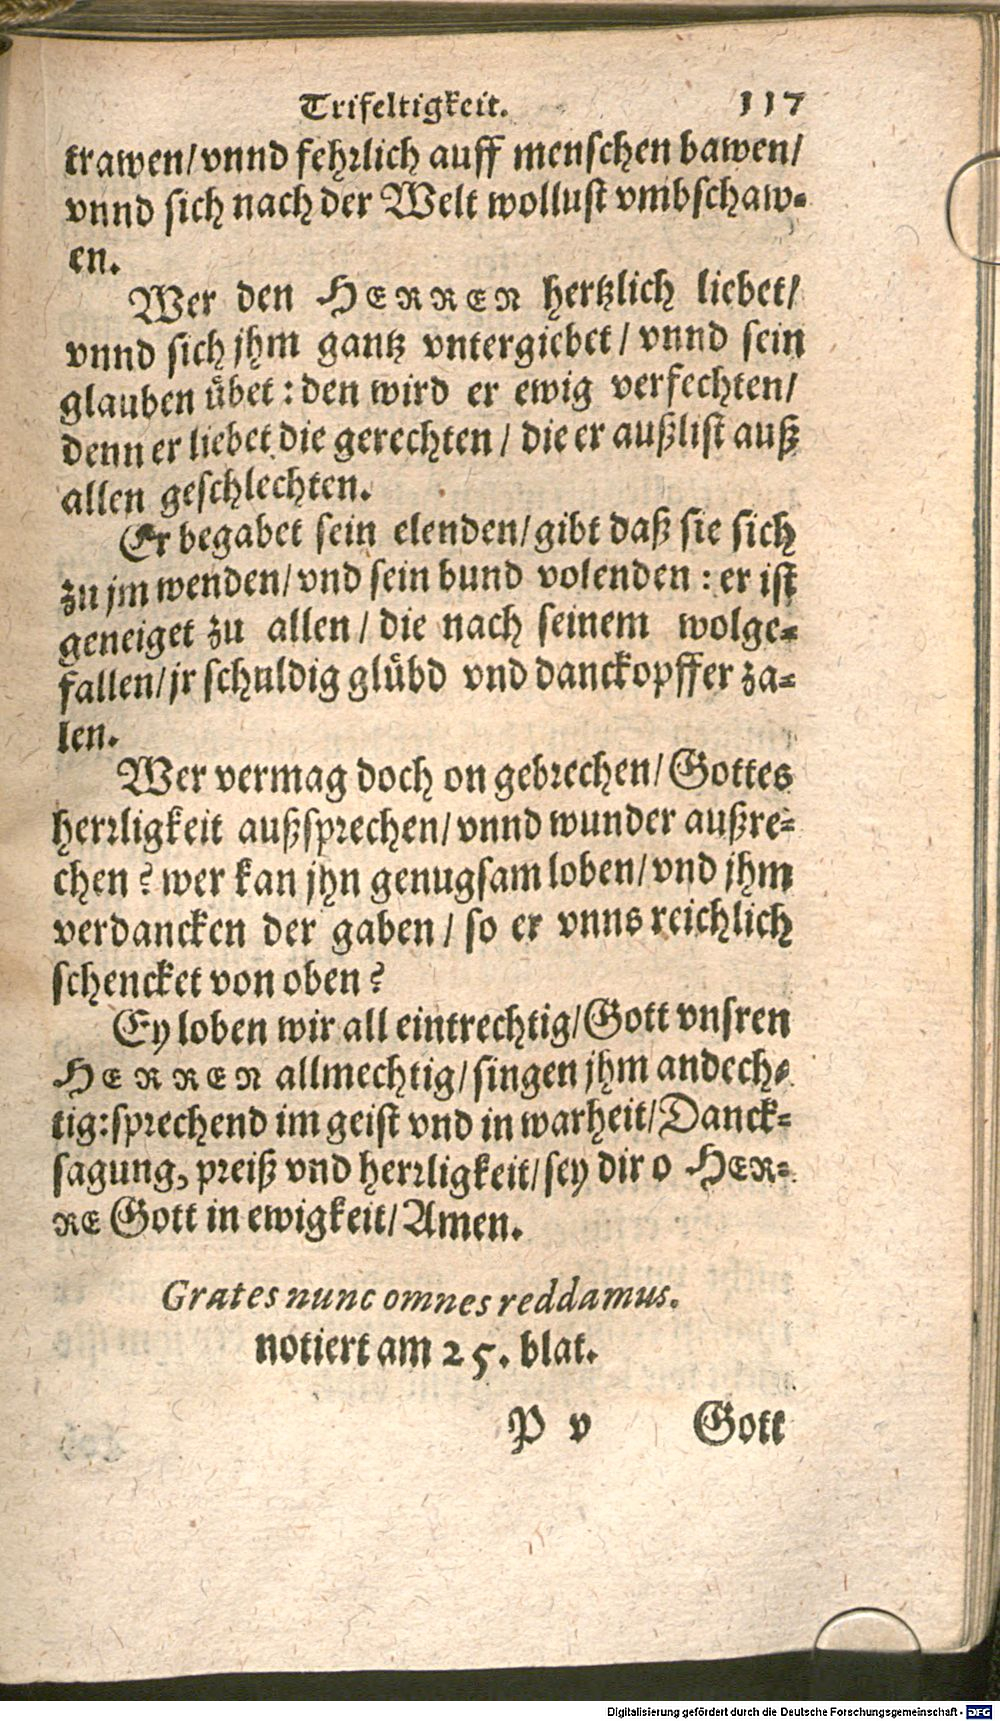 Trifeltigkeit. 117
trawen/ vnnd fehrlich auff menschen bawen/
vnnd sich nach der Welt wollust vmbschaw-
en.
Wer den HERREN hertzlich liebet/
vnnd sich jhm gantz vntergiebet/ vnnd sein
glauben uͤbet: den wird er ewig verfechten/
denn er liebet die gerechten/ die er außlist auß
allen geschlechten.
Er begabet sein elenden/ gibt daß sie sich
zu jm wenden/ vnd sein bund volenden: er ist
geneiget zu allen/ die nach seinem wolge-
fallen/ jr schuldig gluͤbd vnd danckopffer za-
len.
Wer vermag doch on gebrechen/ Gottes
herrligkeit außsprechen/ vnnd wunder außre-
chen? wer kan jhn genugsam loben/ vnd jhm
verdancken der gaben/ so er vnns reichlich
schencket von oben?
Ey loben wir all eintrechtig/ Gott vnsren
HERREN allmechtig/ singen jhm andech-
tig: sprechend im geist vnd in warheit/ Danck-
sagung, preiß vnd herrligkeit/ sey dir o HER-
RE Gott in ewigkeit/ Amen.
Grates nunc omnes reddamus.
notiert am 25. blat.
P v Gott
Digitalisierung gefördert durch die Deutsche Forschungsgemeinschaft - DFG